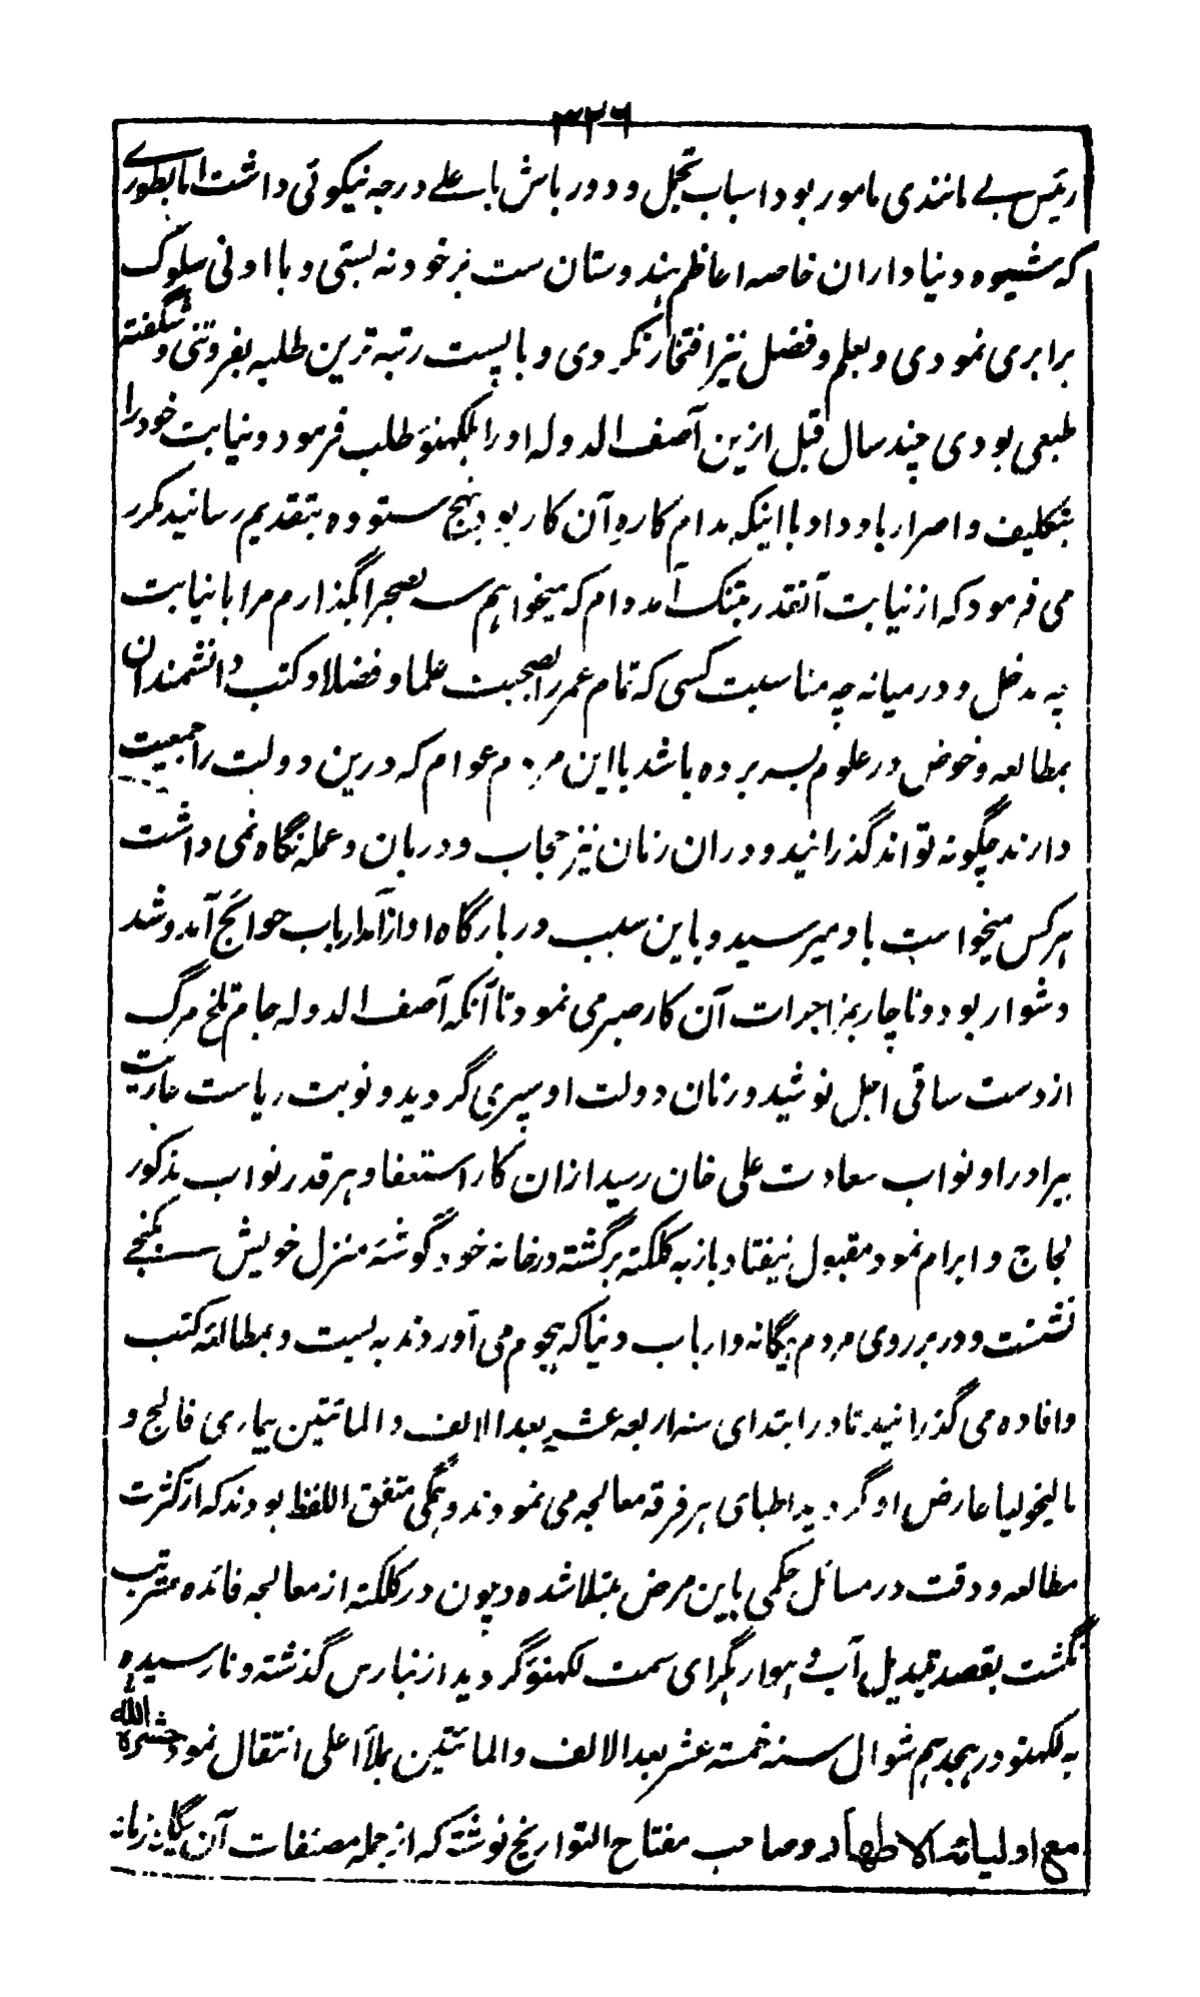 ۳۲۶
رئیس بے مانندی مامور بود اسباب تجمل و دور باش باعلے درجه نیکوئی داشت اما بطورے
که شیوه دنیا داران خاصه اعاظم هندوستان ست بر خود نه بستی و با ادنی سلوک
برابری نمودی و بعلم و فضل نیز افتخار نکردی و با پست رتبه ترین طلبه بفروتنی و شگفته
طبعی بودی چند سال قبل ازین آصف الدوله او را بلکهنؤ طلب فرمود و نیابت خود را
بتکلیف و اصرار باو داد با اینکه مدام کاره آن کار بود بنهج ستوده بتقدیم رسانید مکرر
می فرمود که از نیابت آنقدر بتنگ آمده ام که میخواهم سر بصحرا گذارم مرا با نیابت
چه مدخل و در میانه چه مناسبت کسی که تمام عمر را بصحبت علما و فضلا و کتب دانشمندان
بمطالعه و خوض در علوم بسر برده باشد با این مردم عوام که درین دولت را جمعیت
دارند چگونه تواند گذرانید و دران زنان نیز حجاب و دربان و عمله نگاه نمی داشت
هرکس میخواست باو میرسید و باین سبب در بارگاه او از آمد ارباب حوائج آمد و شد
دشوار بود و ناچار بمزاجرات آن کار صبری نمود تا آنکه آصف الدوله جام تلخ مرگ
از دست ساقی اجل نوشید و زنان دولت او سپری گردید و نوبت ریاست عاریت
ببرادر او نواب سعادت علی خان رسید ازان کار استعفا و هر قدر نواب مذکور
لجاج و ابرام نمود مقبول نیفتاد باز به کلکته برگشته در خانه خود گوشه منزل خویش بکنجے
نشست و در بر روی مردم بیگانه و ارباب دنیا که هجوم می آوردند به بست و بمطالعه کتب
و افاده می گذرانید تا در ابتدای سنه اربعه عشر بعد الالف و المائتین بیماری فالج و
مالیخولیا عارض او گردید اطبای هر فرقه معالجه می نمودند و همگی متفق اللفظ بودند که از کثرت
مطالعه و دقت در مسائل حکمی باین مرض مبتلا شده و چون در کلکته از معالجه فائده مترتب
نگشت بقصد تبدیل آب و هوا رهگرای سمت لکهنؤ گردید از بنارس گذشته و نا رسیده
به لکهنو در هجدهم شوال سنه خمسه عشر بعد الالف و المائتین بملأ اعلی انتقال نمود حشره الله
مع اولیائه الاطهار و صاحب مفتاح التواریخ نوشته که از جمله مصنفات آن یگانه زمانه